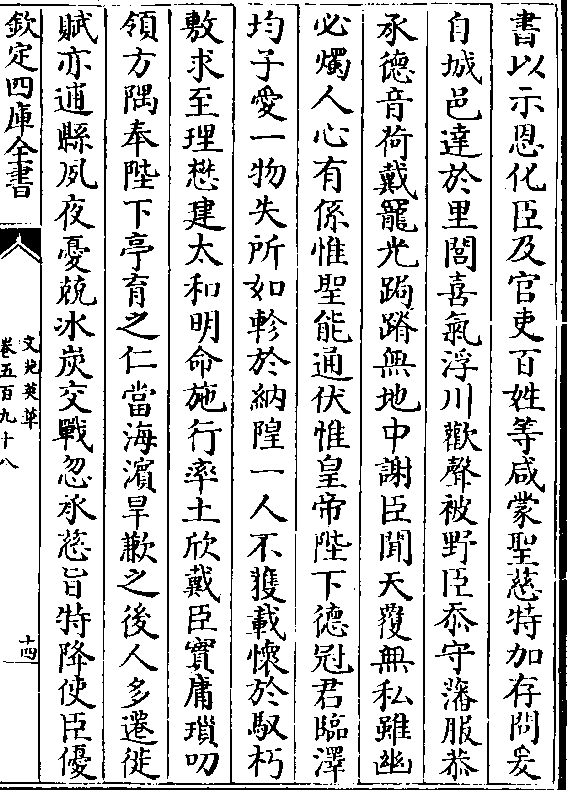 書以示恩化臣及官吏百姓等咸蒙聖慈特加存問爰
自城邑達於里閭喜氣浮川歡聲被野臣忝守藩服恭
承德音荷戴寵光跼蹐無地中謝臣聞天覆無私雖幽
必燭人心有係惟聖能通伏惟皇帝陛下德冠君臨澤
均子愛一物失所如軫於納隍一人不獲載懷於馭朽
敷求至理懋建太和明命施行率土欣戴臣實庸瑣叨
領方隅奉陛下亭育之仁當海濵旱歉之後人多遷徙
賦亦逋懸夙夜憂兢冰炭交戰忽承慈旨特降使臣優
欽定四庫全書
文苑英華
卷五百九十八
十四